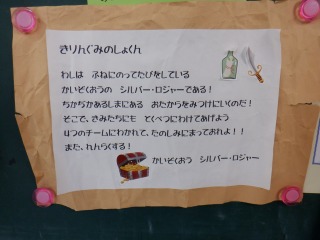 きりんぐみのしょくん
わしは ふねにのってたびをしている
かいぞくおうの シルバー・ロジャーである！
ちかぢかあるしまにある おたからをみつけにいくのだ！
そこで、きみたちにも とくべつにわけてあげよう
4つのチームにわかれて、たのしみにまっておれよ！！
また、れんらくする！
かいぞくおう シルバー・ロジャー